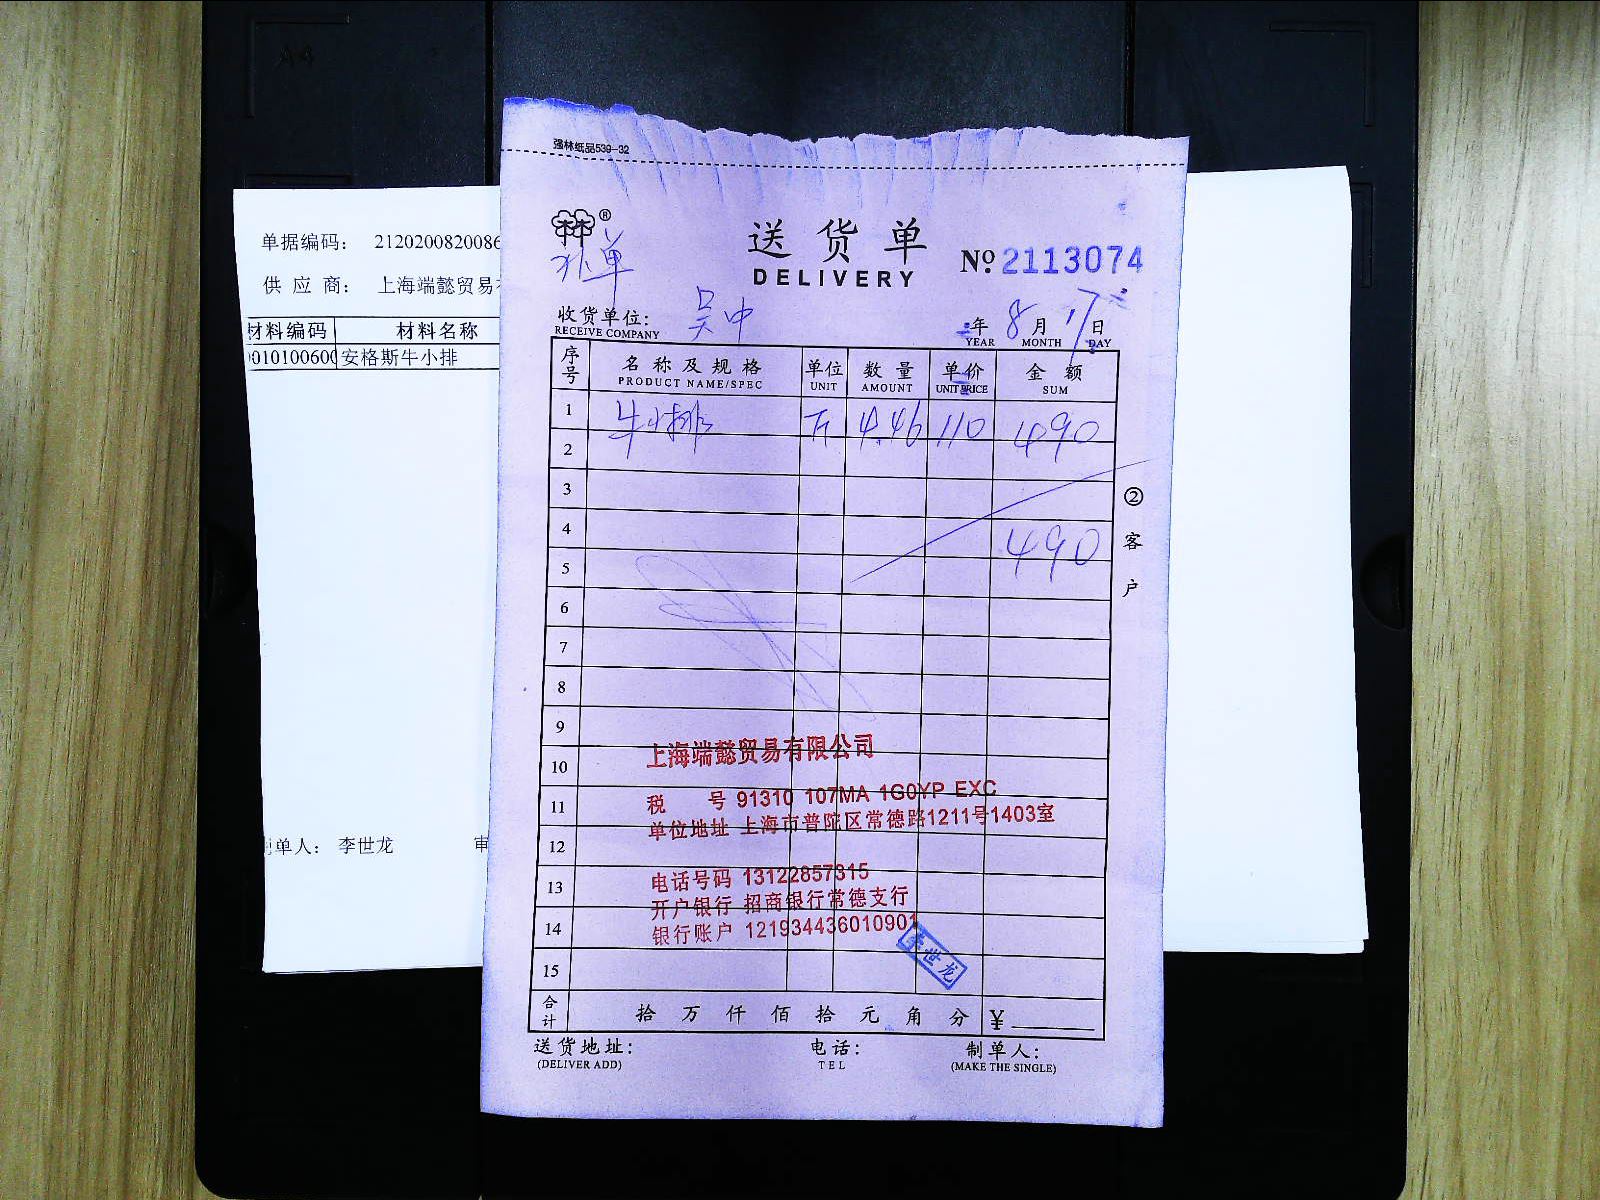 A4
强林纸品539-32
单据编码： 2120200820086
供 应 商： 上海端懿贸易
材料编码 材料名称
010100600 安格斯牛小排
单人： 李世龙 审
林林®
单
送 货 单
DELIVERY
№ 2113074
收货单位： 吴中
RECEIVE COMPANY
年 8 月 17 日
YEAR MONTH DAY
序号 名 称 及 规 格 单位 数 量 单价 金 额
PRODUCT NAME/SPEC UNIT AMOUNT UNIT PRICE SUM
1 牛小排 斤 4.46 110 490
2
3
4 490
5
6
7
8
9
10
11
12
13
14
15
② 客 户
上海端懿贸易有限公司
税 号 91310 107MA 1G0YP EXC
单位地址 上海市普陀区常德路1211号1403室
电话号码 13122857315
开户银行 招商银行常德支行
银行账户 121934436010901
李世龙
合计 拾 万 仟 佰 拾 元 角 分 ¥
送货地址： 电话： 制单人：
(DELIVER ADD) TEL (MAKE THE SINGLE)